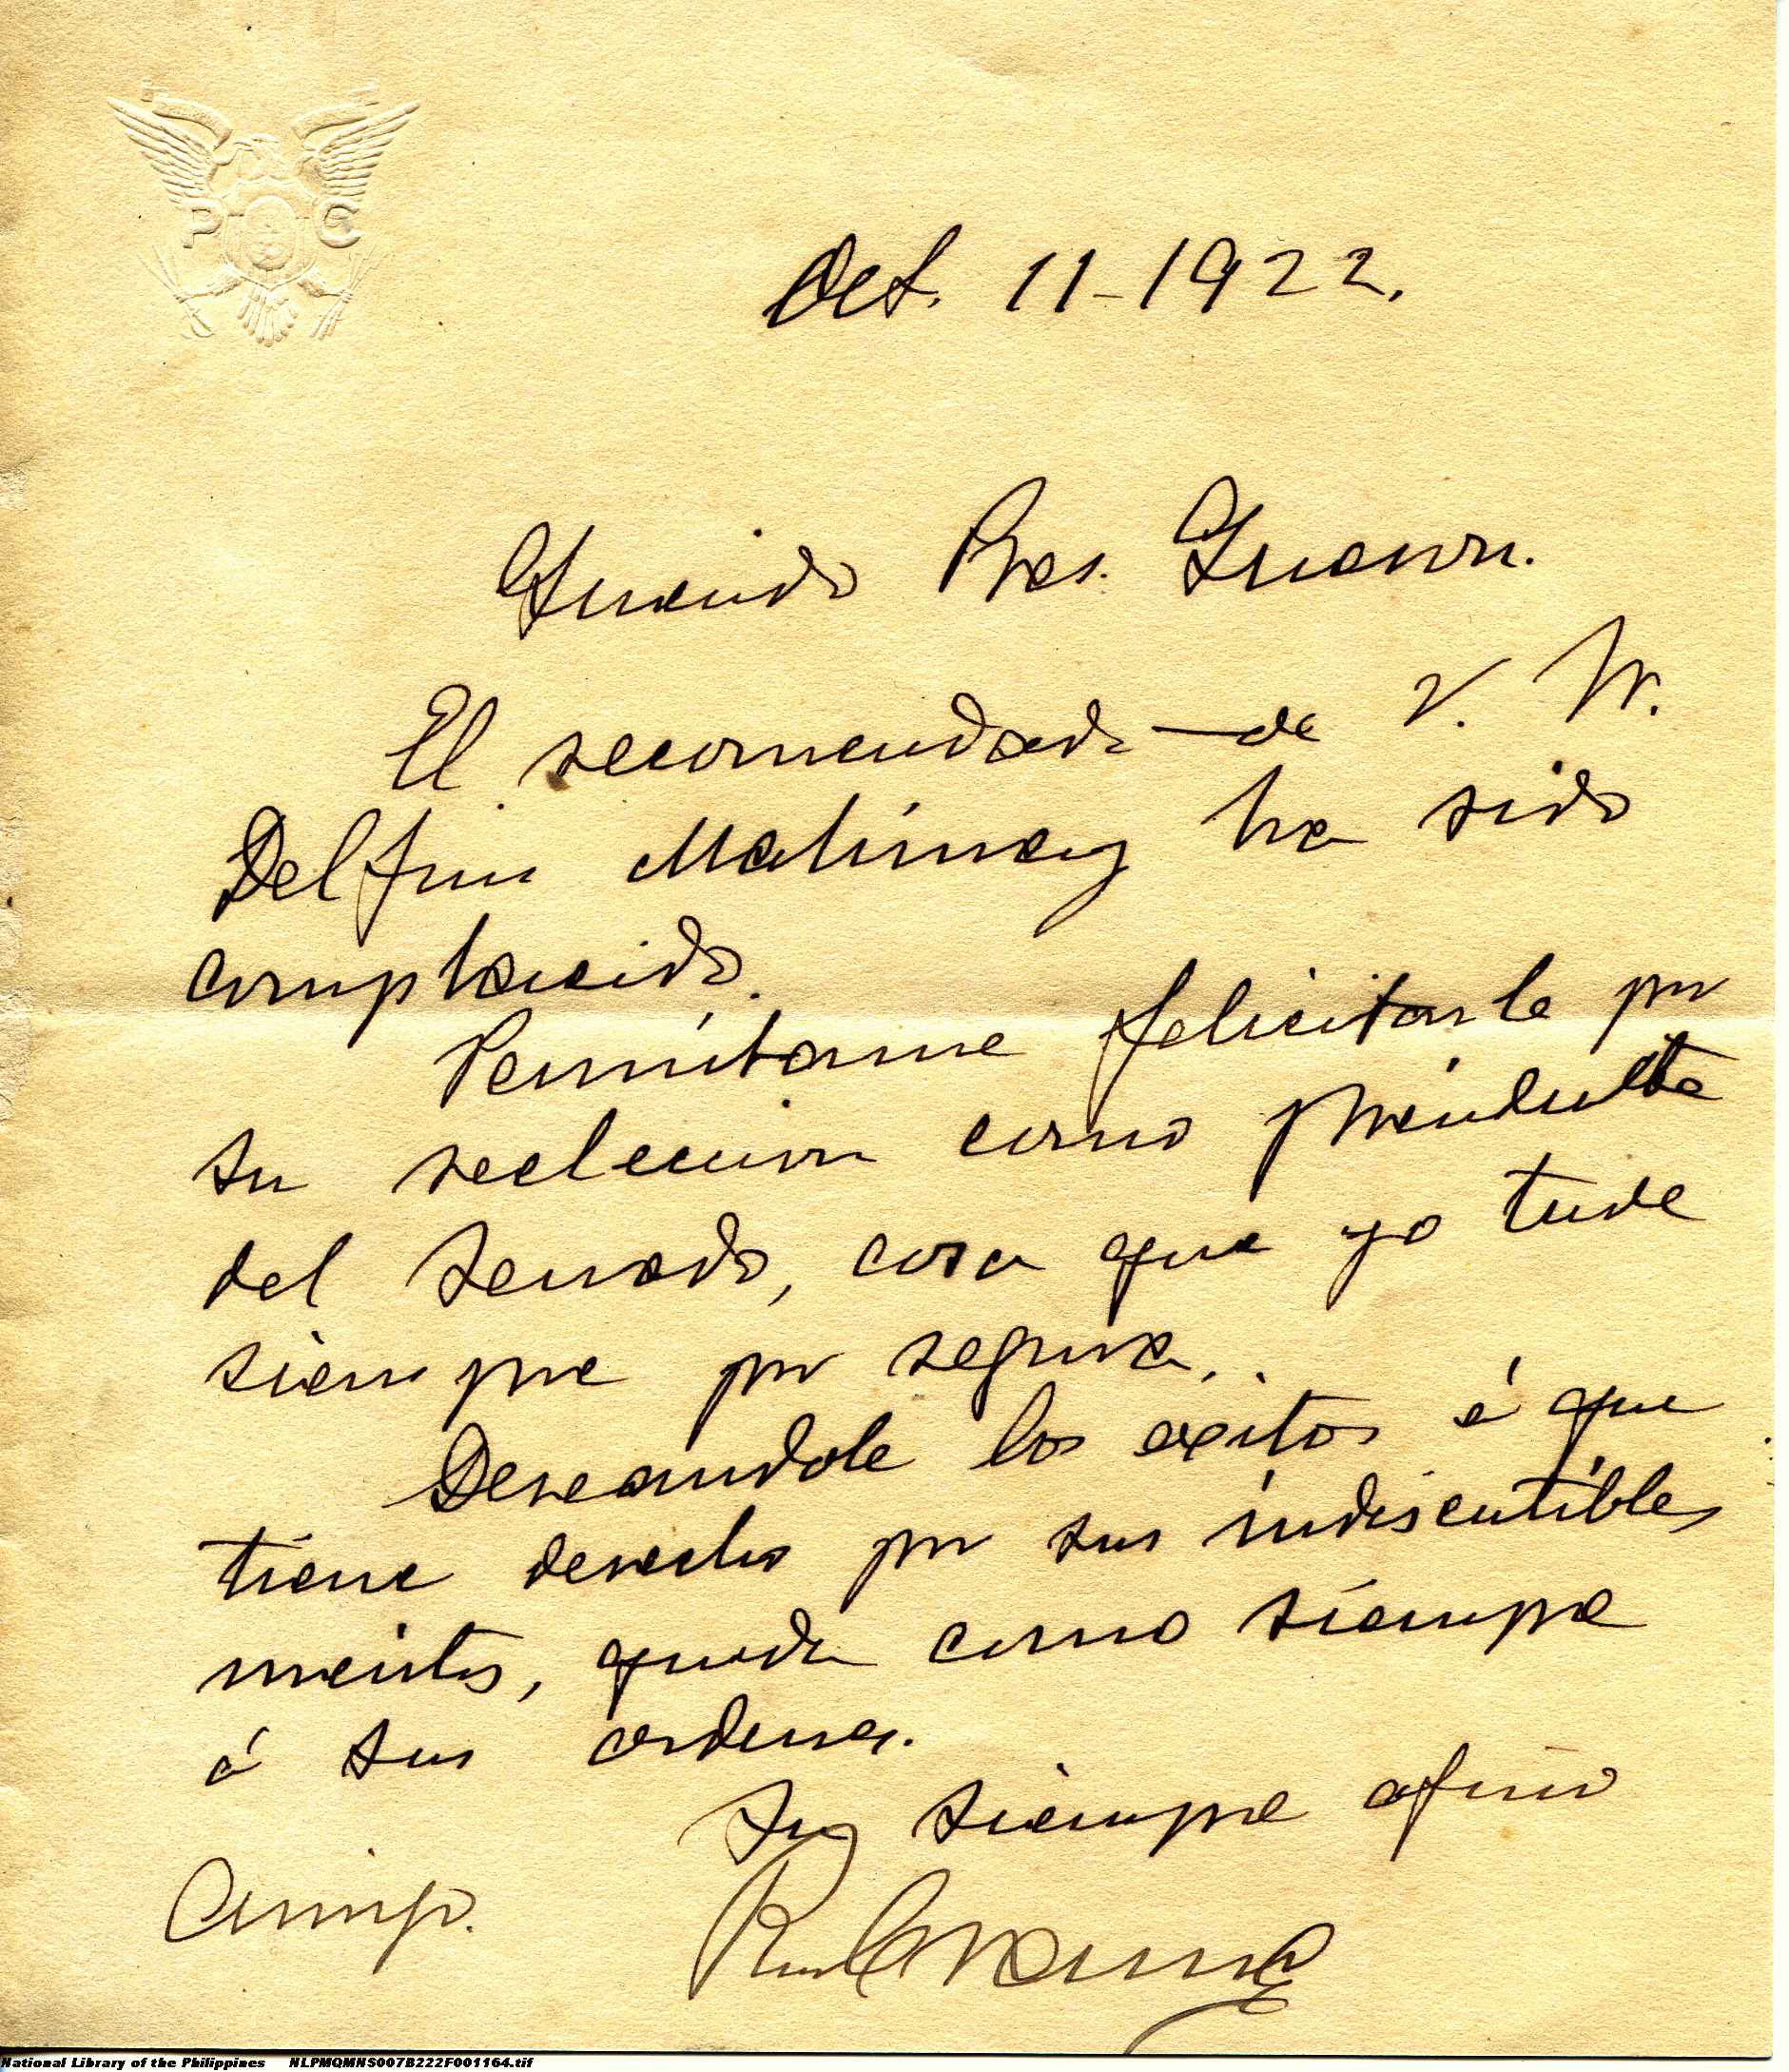 P C
Oct. 11-1922.
Querido Pres. Quezon.
El recomendado de V. M.
Delfin Mahinay ha sido
complacido.
Permítame felicitarle por
su reeleccion como presidente
del Senado, cosa que yo tuve
siempre por segura.
Deseandole los exitos á que
tiene derecho por sus indiscutibles
meritos, queda como siempre
á sus ordenes.
Su siempre afmo
Amigo.
National Library of the Philippines NLPMQMNS007B222F001164.tif